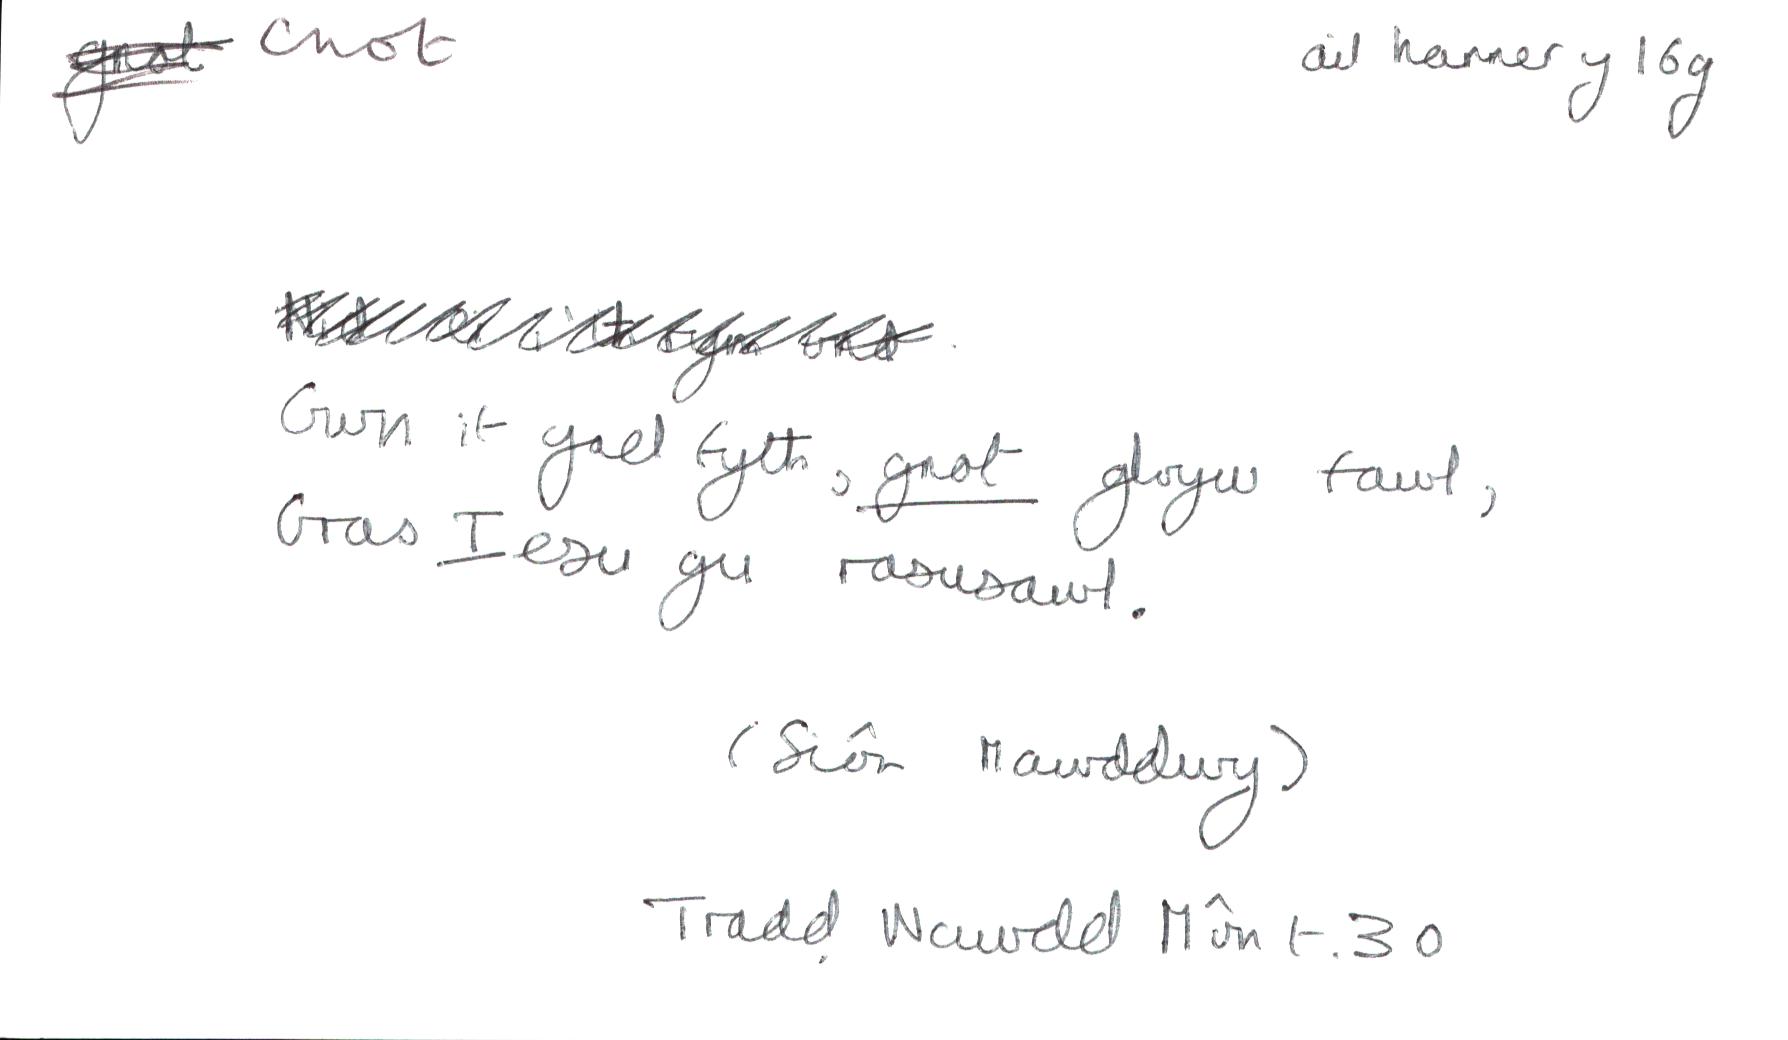 gnot cnot ail hanner y 16g
Gwn it gael fyth, gnot gloyw fawl,
Gras Iesu gu rasusawl.
(Siôn Mawddwy)
Tradd. Nawdd Môn t. 30